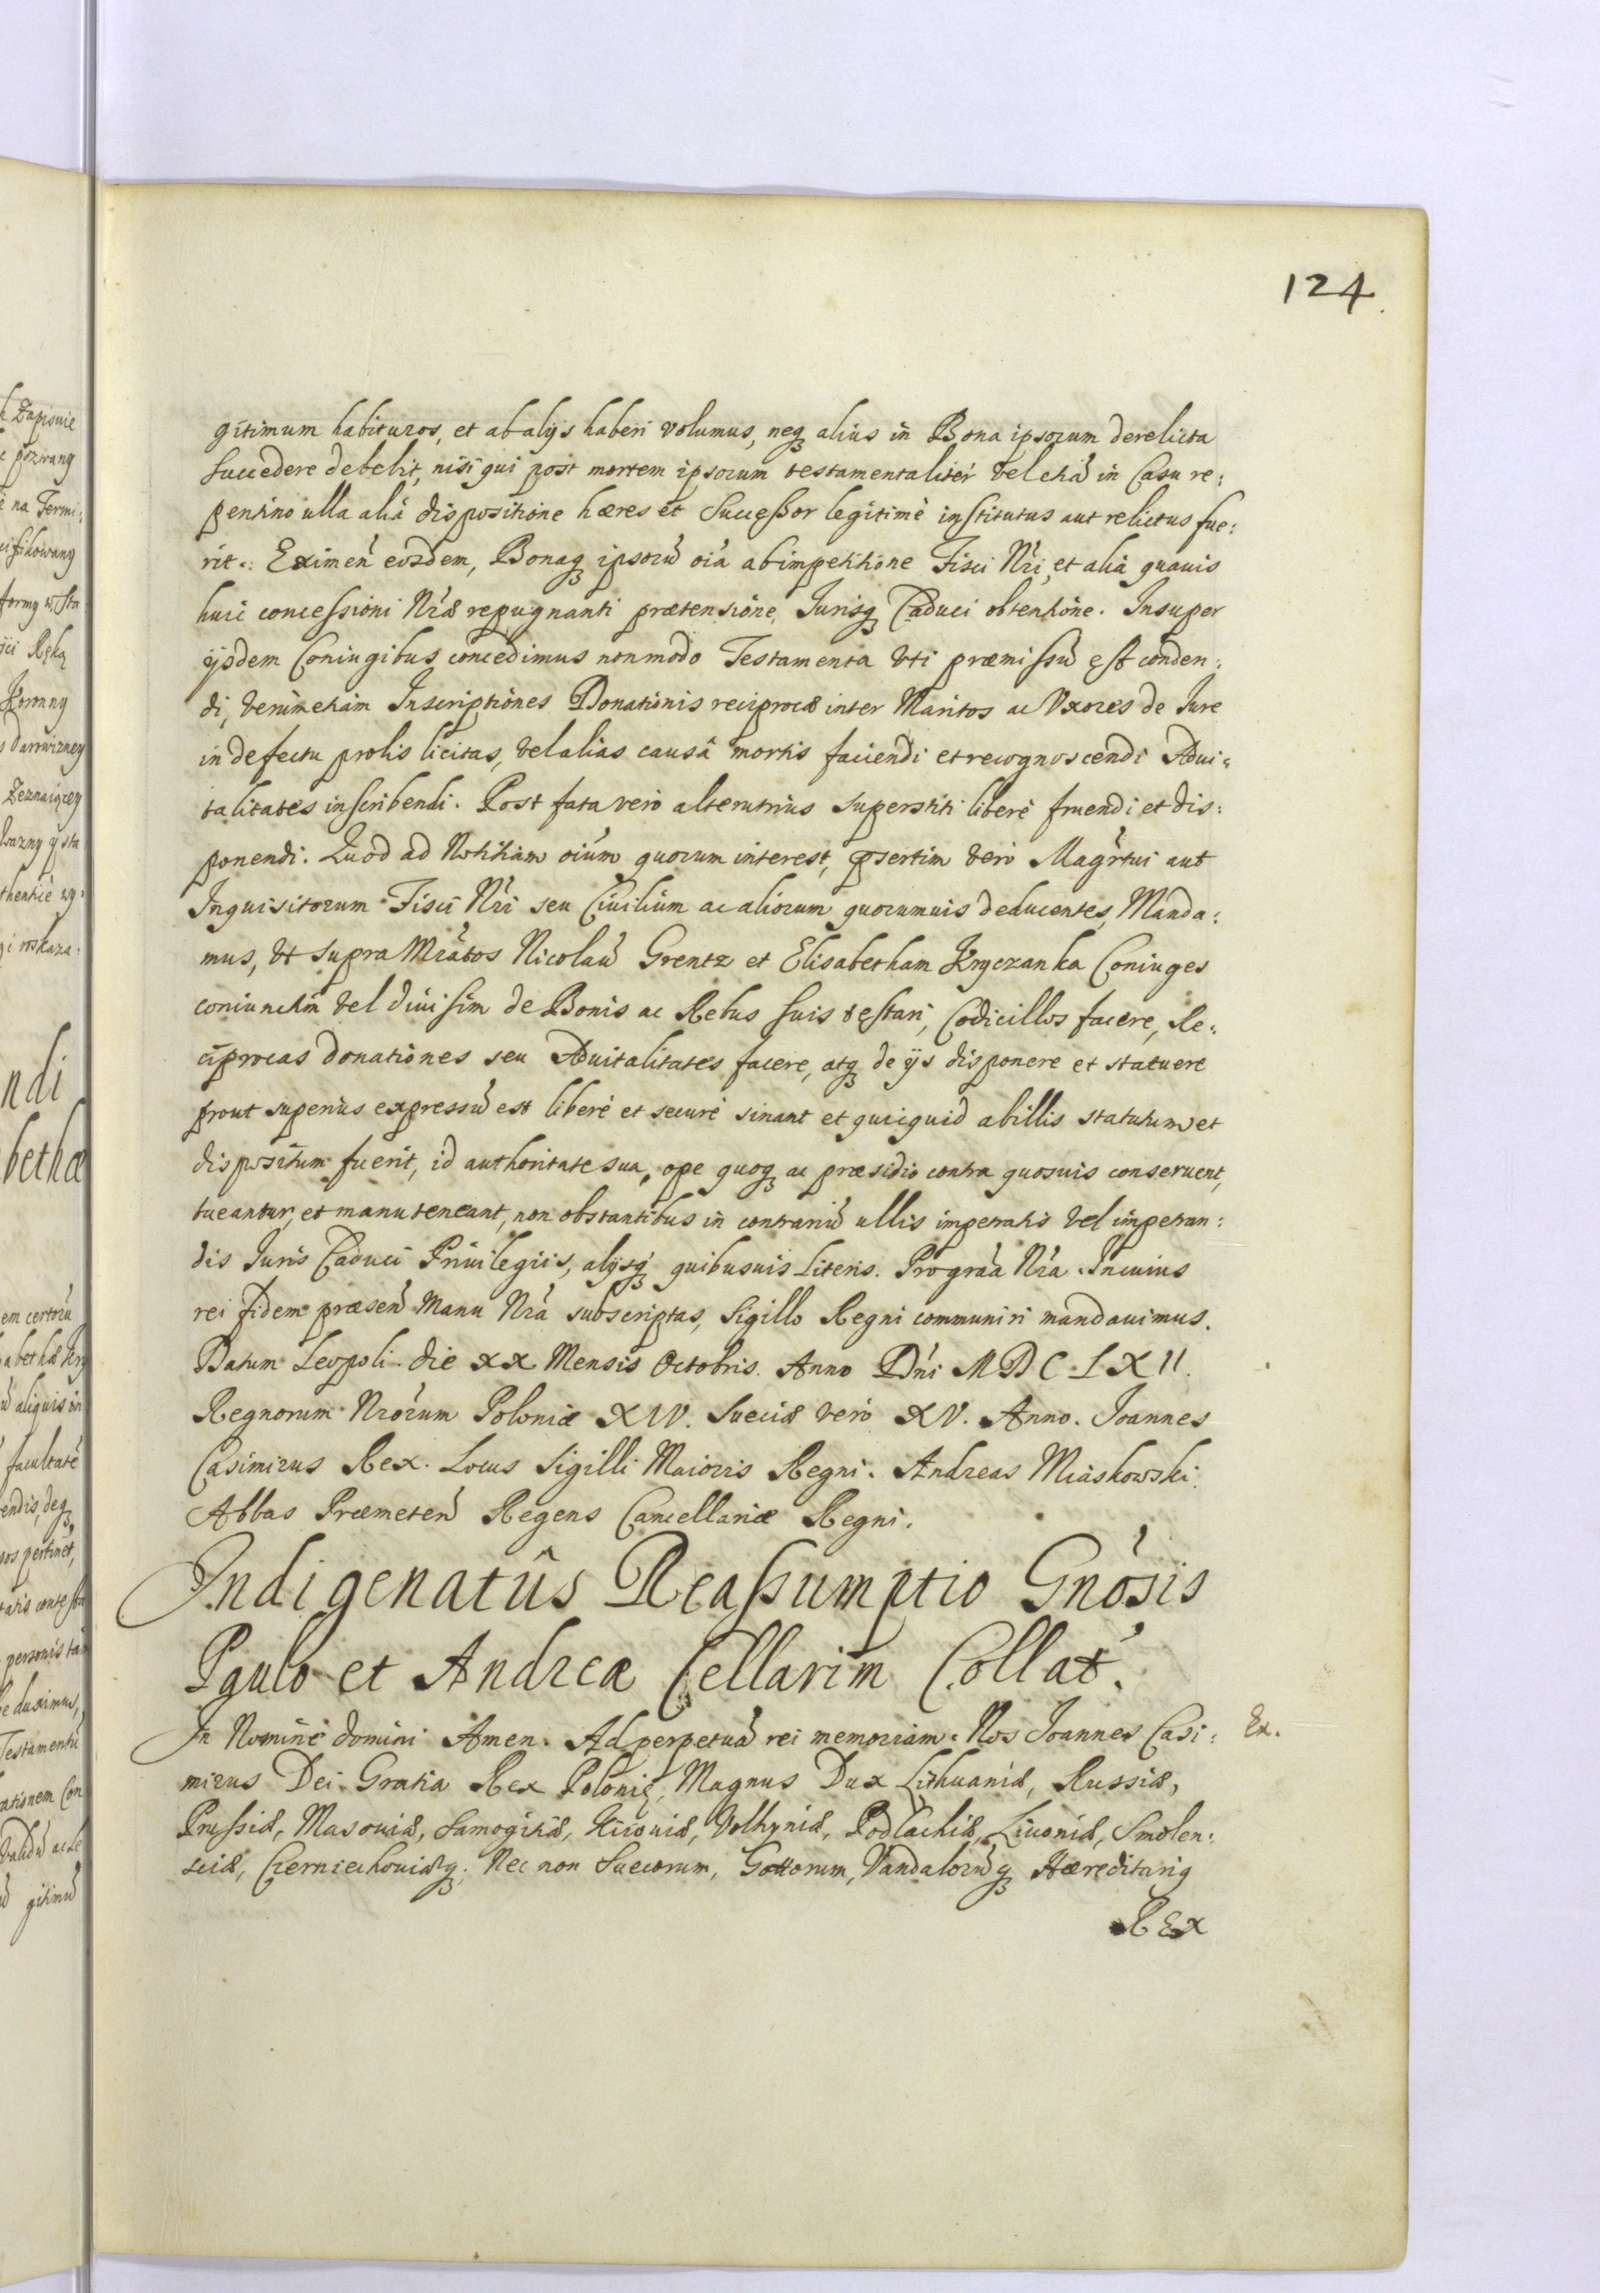 124
gitimum habituros, et ab alijs haberi volumus, neq₃ alius in Bona ipsorum derelicta
succedere debebit, nisi qui post mortem ipsorum testamentaliter vel etiã in Casu re:
pentino ulla aliâ dispositione hæres et Successor legitimè institutus aut relictus fue:
rit. Eximeñ eosdem, Bonaq₃ ipsorũ oĩa ab impetitione Fisci Nr̃i, et aliâ quauis
huic concessioni Nr̃æ repugnanti prætensione, Jurisq₃ Caduci obtentione. Insuper
ijsdem Coniugibus concedimus non modo Testamenta vti præmissũ est conden:
di, verùm etiàm Inscriptiones Donationis reciprocæ inter Maritos ac Vxores de Jure
in defectu prolis licitas, vel alias causâ mortis faciendi et recognoscendi Adui:
talitates inscribendi. Post fata verò alterutrius superstiti liberè fruendi et dis:
ponendi. Quod ad Notitiam oĩum quorum interest, p̃sertim verò Magr̃tui aut
Inquisitorum Fisci Nr̃i seu Ciuilium ac aliorum quorumuis deducentes, Manda:
mus, vt supra Mr̃atos Nicolaũ Grentz et Elisabetham Kryczanka Coniuges
coniunctim vel diuisim de Bonis ac Rebus suis testari, Codicillos facere, Re:
ciprocas donationes seu Aduitalitates facere, atq₃ de ijs disponere et statuere
prout superiùs expressũ est liberè et securè sinant et quicquid ab illis statutum et
dispositum fuerit, id authoritate sua, ope quoq₃ ac præsidio contra quosuis conseruent,
tueantur, et manuteneant, non obstantibus in contrariũ ullis impetratis vel impetran:
dis Juris Caduci Priuilegiis, alijsq₃ quibusuis Literis. Pro gr̃aa Nr̃a. In cuius
rei fidem præseñ Manu Nr̃a subscriptas, Sigillo Regni communiri mandauimus.
Datum Leopoli die XX Mensis Octobris. Anno Dñi MDCLXII.
Regnorum Nr̃orum Poloniæ XIV. Sueciæ verò XV. Anno. Joannes
Casimirus Rex. Locus Sigilli Maioris Regni. Andreas Miaskowski.
Abbas Præmeteñ Regens Cancellariæ Regni.
Indigenatûs Reassumptio Gñosis
Paulo et Andreæ Cellarim Collat.
In Nomine domini Amen. Ad perpetuã rei memoriam. Nos Joannes Casi: Ex.
mirus Dei Gratia Rex Polonię, Magnus Dux Lithuaniæ, Russiæ,
Prussiæ, Masouiæ, Samogitiæ, Kiiouiæ, Volhyniæ, Podlachiæ, Liuoniæ, Smolen:
sciæ, Czerniechouiæq₃. Nec non Suecorum, Gottorum, Vandalorũq₃ Hæreditariꝰ
REX